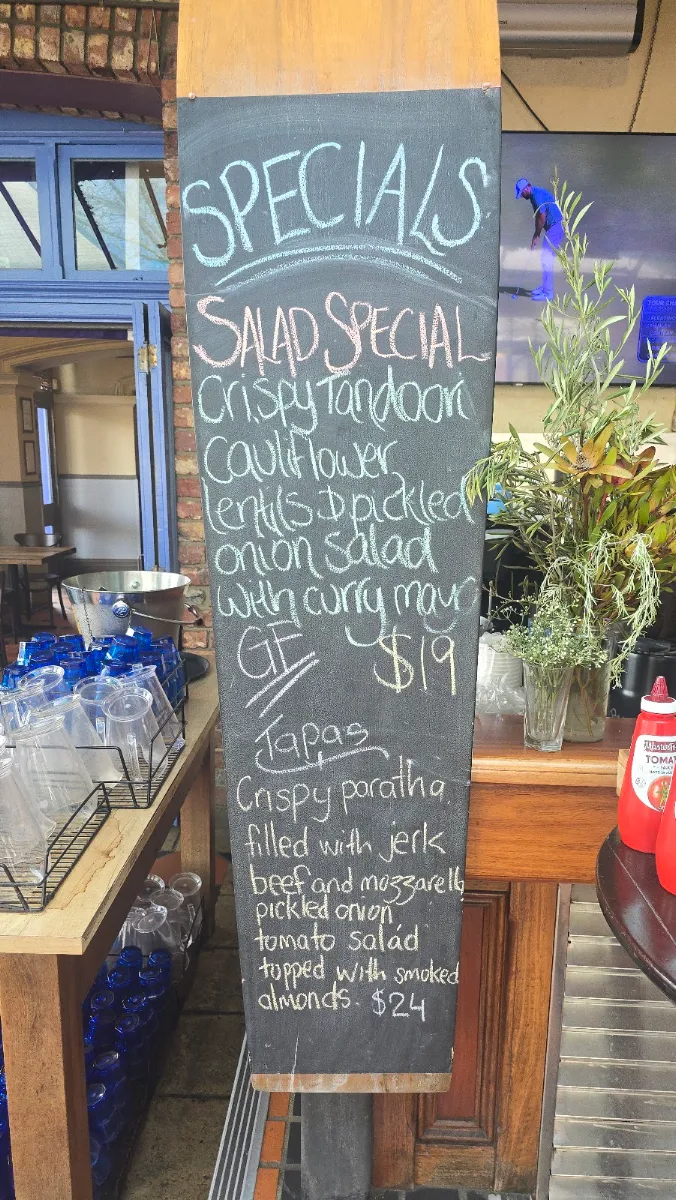 SPECIALS
SALAD SPECIAL
Crispy Tandoori
Cauliflower
lentils & pickled
onion salad
with curry mayo
GF $19
Tapas
Crispy paratha
filled with jerk
beef and mozzarella
pickled onion
tomato salad
topped with smoked
almonds. $24
TOMA